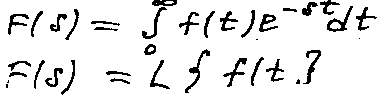 F(s) = ∫₀^∞ f(t)e^{-st}dt
F(s) = L{f(t)}